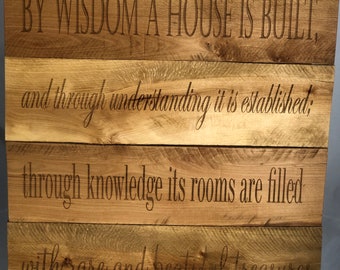 BY WISDOM A HOUSE IS BUILT,
and through understanding it is established;
through knowledge its rooms are filled
with rare and beautiful treasures